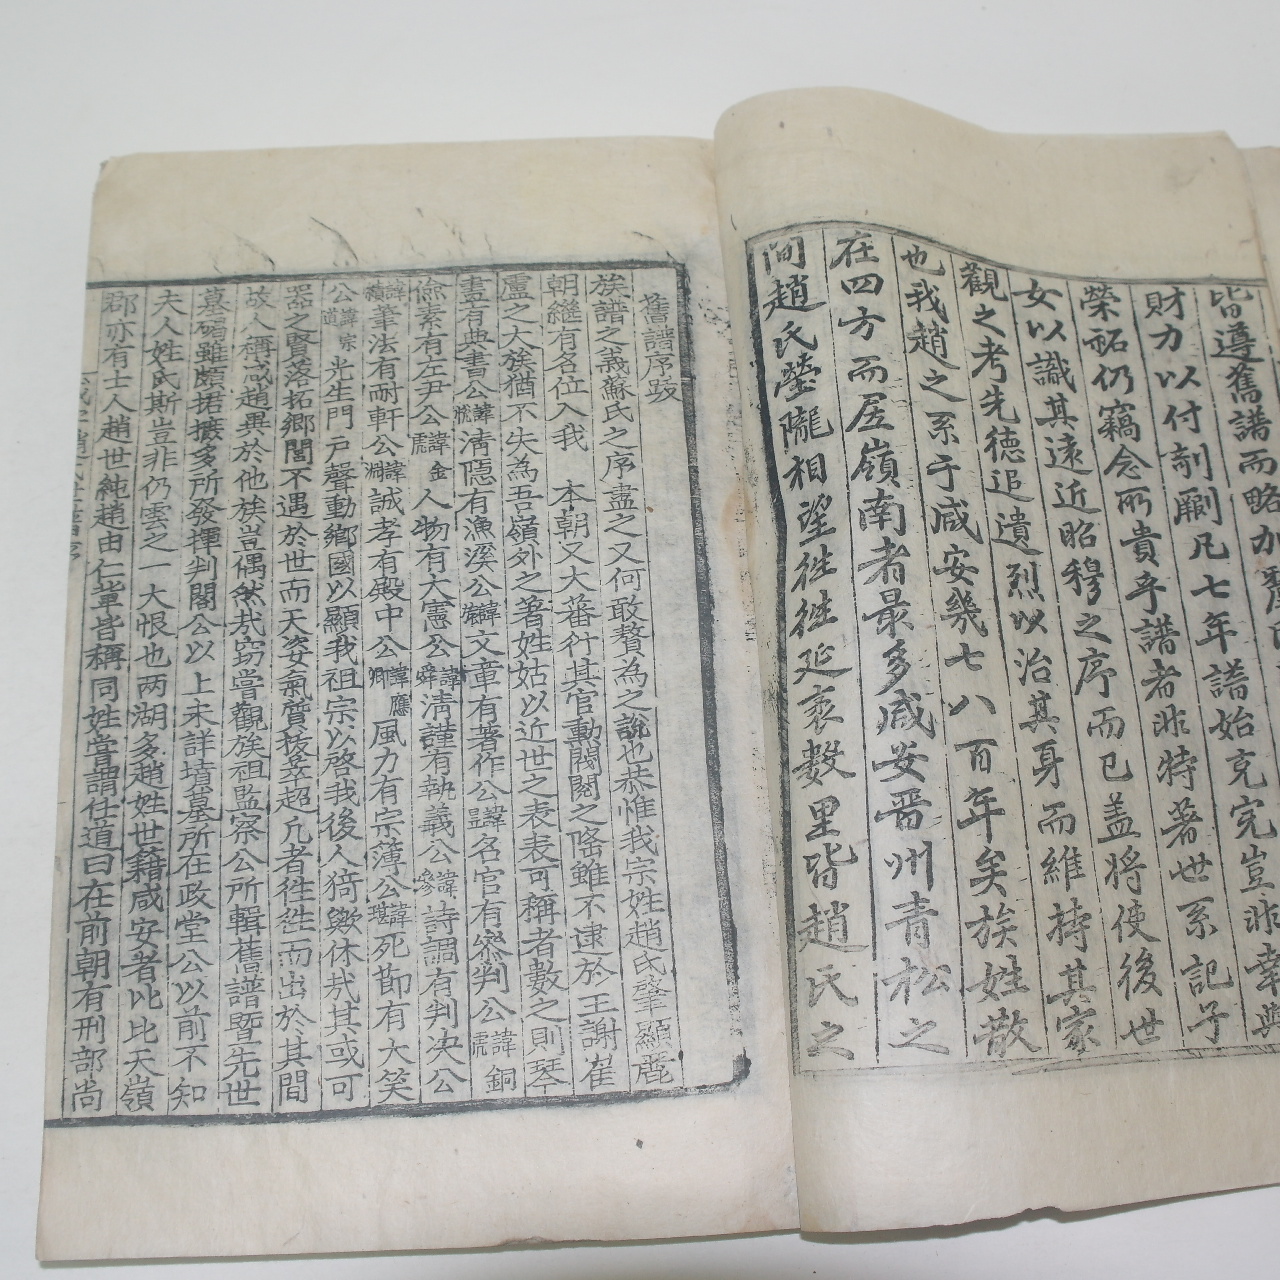 皆遵舊譜而略加
財力以付剞劂凡七年譜始克完豈非幸與
榮祏仍竊念所貴乎譜者非特著世系記子
女以識其遠近昭穆之序而已盖將使後世
觀之考先德追遺烈以治其身而維持其家
也我趙之系于咸安幾七八百年矣族姓散
在四方而居嶺南者最多咸安晋州青松之
間趙氏塋隴相望徃徃延袤數里皆趙氏之
舊譜序跋
族譜之義蘇氏之序盡之又何敢贅為之說也恭惟我宗姓趙氏肇顯麗
朝繼有名位入我 本朝又大蕃衍其官勳閥閱之隆雖不逮於王謝崔
盧之大族猶不失為吾嶺外之著姓姑以近世之表表可稱者數之則琴
書有典書公諱 清隱有漁溪公諱 文章有著作公諱昱名官有參判公諱虎銅
儉素有左尹公諱金虎人物有大憲公諱舜清謹有執義公諱參詩調有判决公
諱 筆法有耐軒公諱淵誠孝有殿中公諱應卿風力有宗簿公諱 死節有大笑
公諱宗道光生門戶聲動鄉國以顯我祖宗以啓我後人猗歟休㢤其或可
器之賢落拓鄉閭不遇於世而天姿氣質拔萃超凡者徃徃而出於其間
故人稱咸趙異於他族豈偶然㢤窃嘗觀族祖監察公所輯舊譜曁先世
墓碣雖頗捃摭多所發揮判閤公以上未詳墳墓所在政堂公以前不知
夫人姓氏斯豈非仍雲之一大恨也两湖多趙姓世籍咸安者比比天嶺
郡亦有士人趙世純趙由仁軰皆稱同姓嘗謂任道曰在前朝有刑部尚